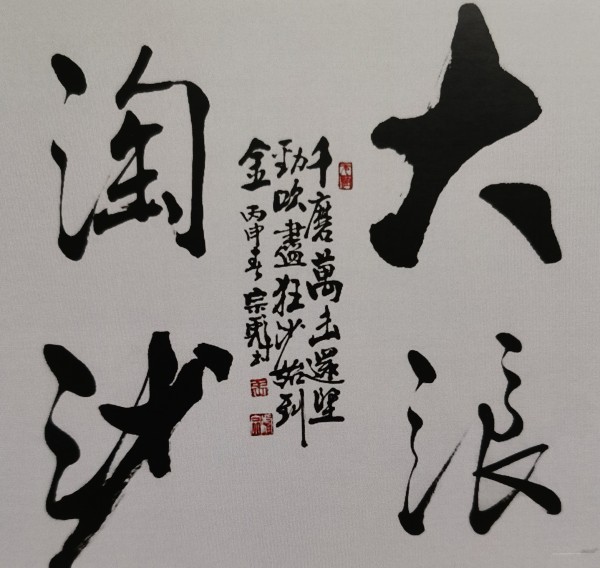 大浪
淘沙
千磨萬击還堅
勁吹盡狂沙始到
金
丙申春宗彪书